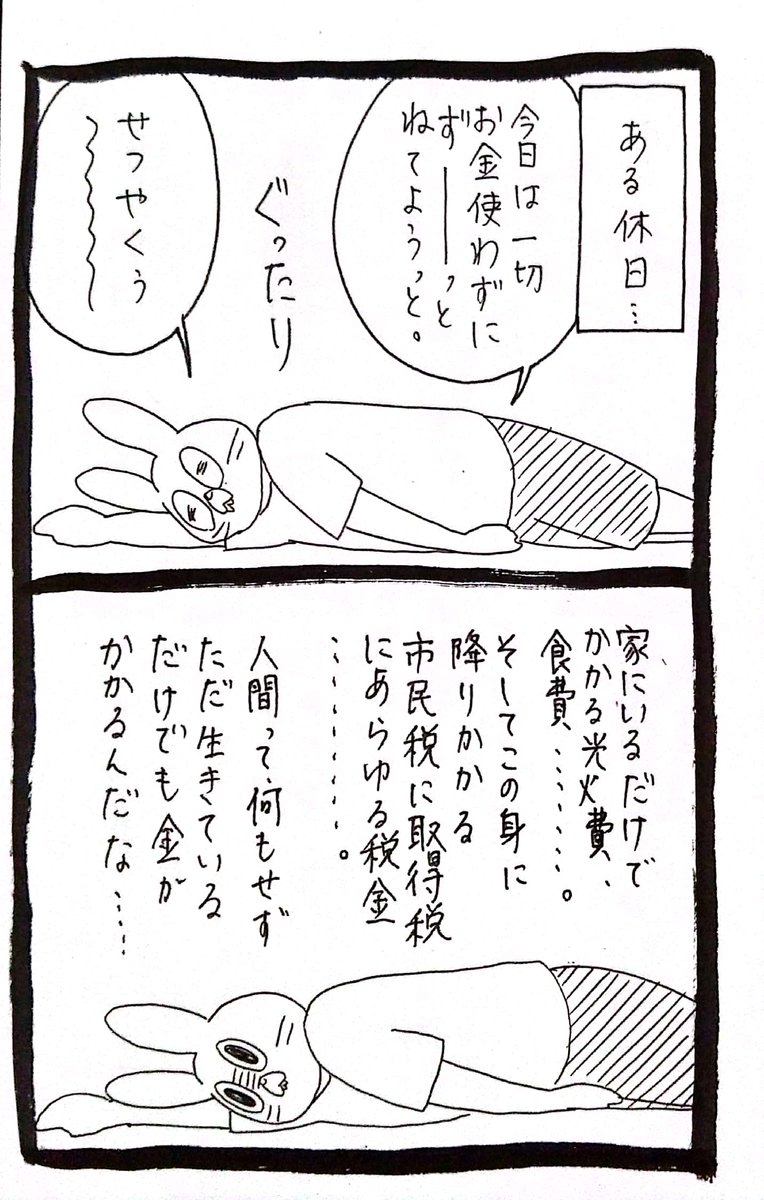 ある休日…
今日は一切
お金使わずに
ず――っと
ねてようっと。
ぐったり
せつやくぅ
〜〜〜〜
家にいるだけで
かかる光火費、
食費………。
そしてこの身に
降りかかる
市民税に取得税
にあらゆる税金
…………。
人間って、何もせず
ただ生きている
だけでも金が
かかるんだな……